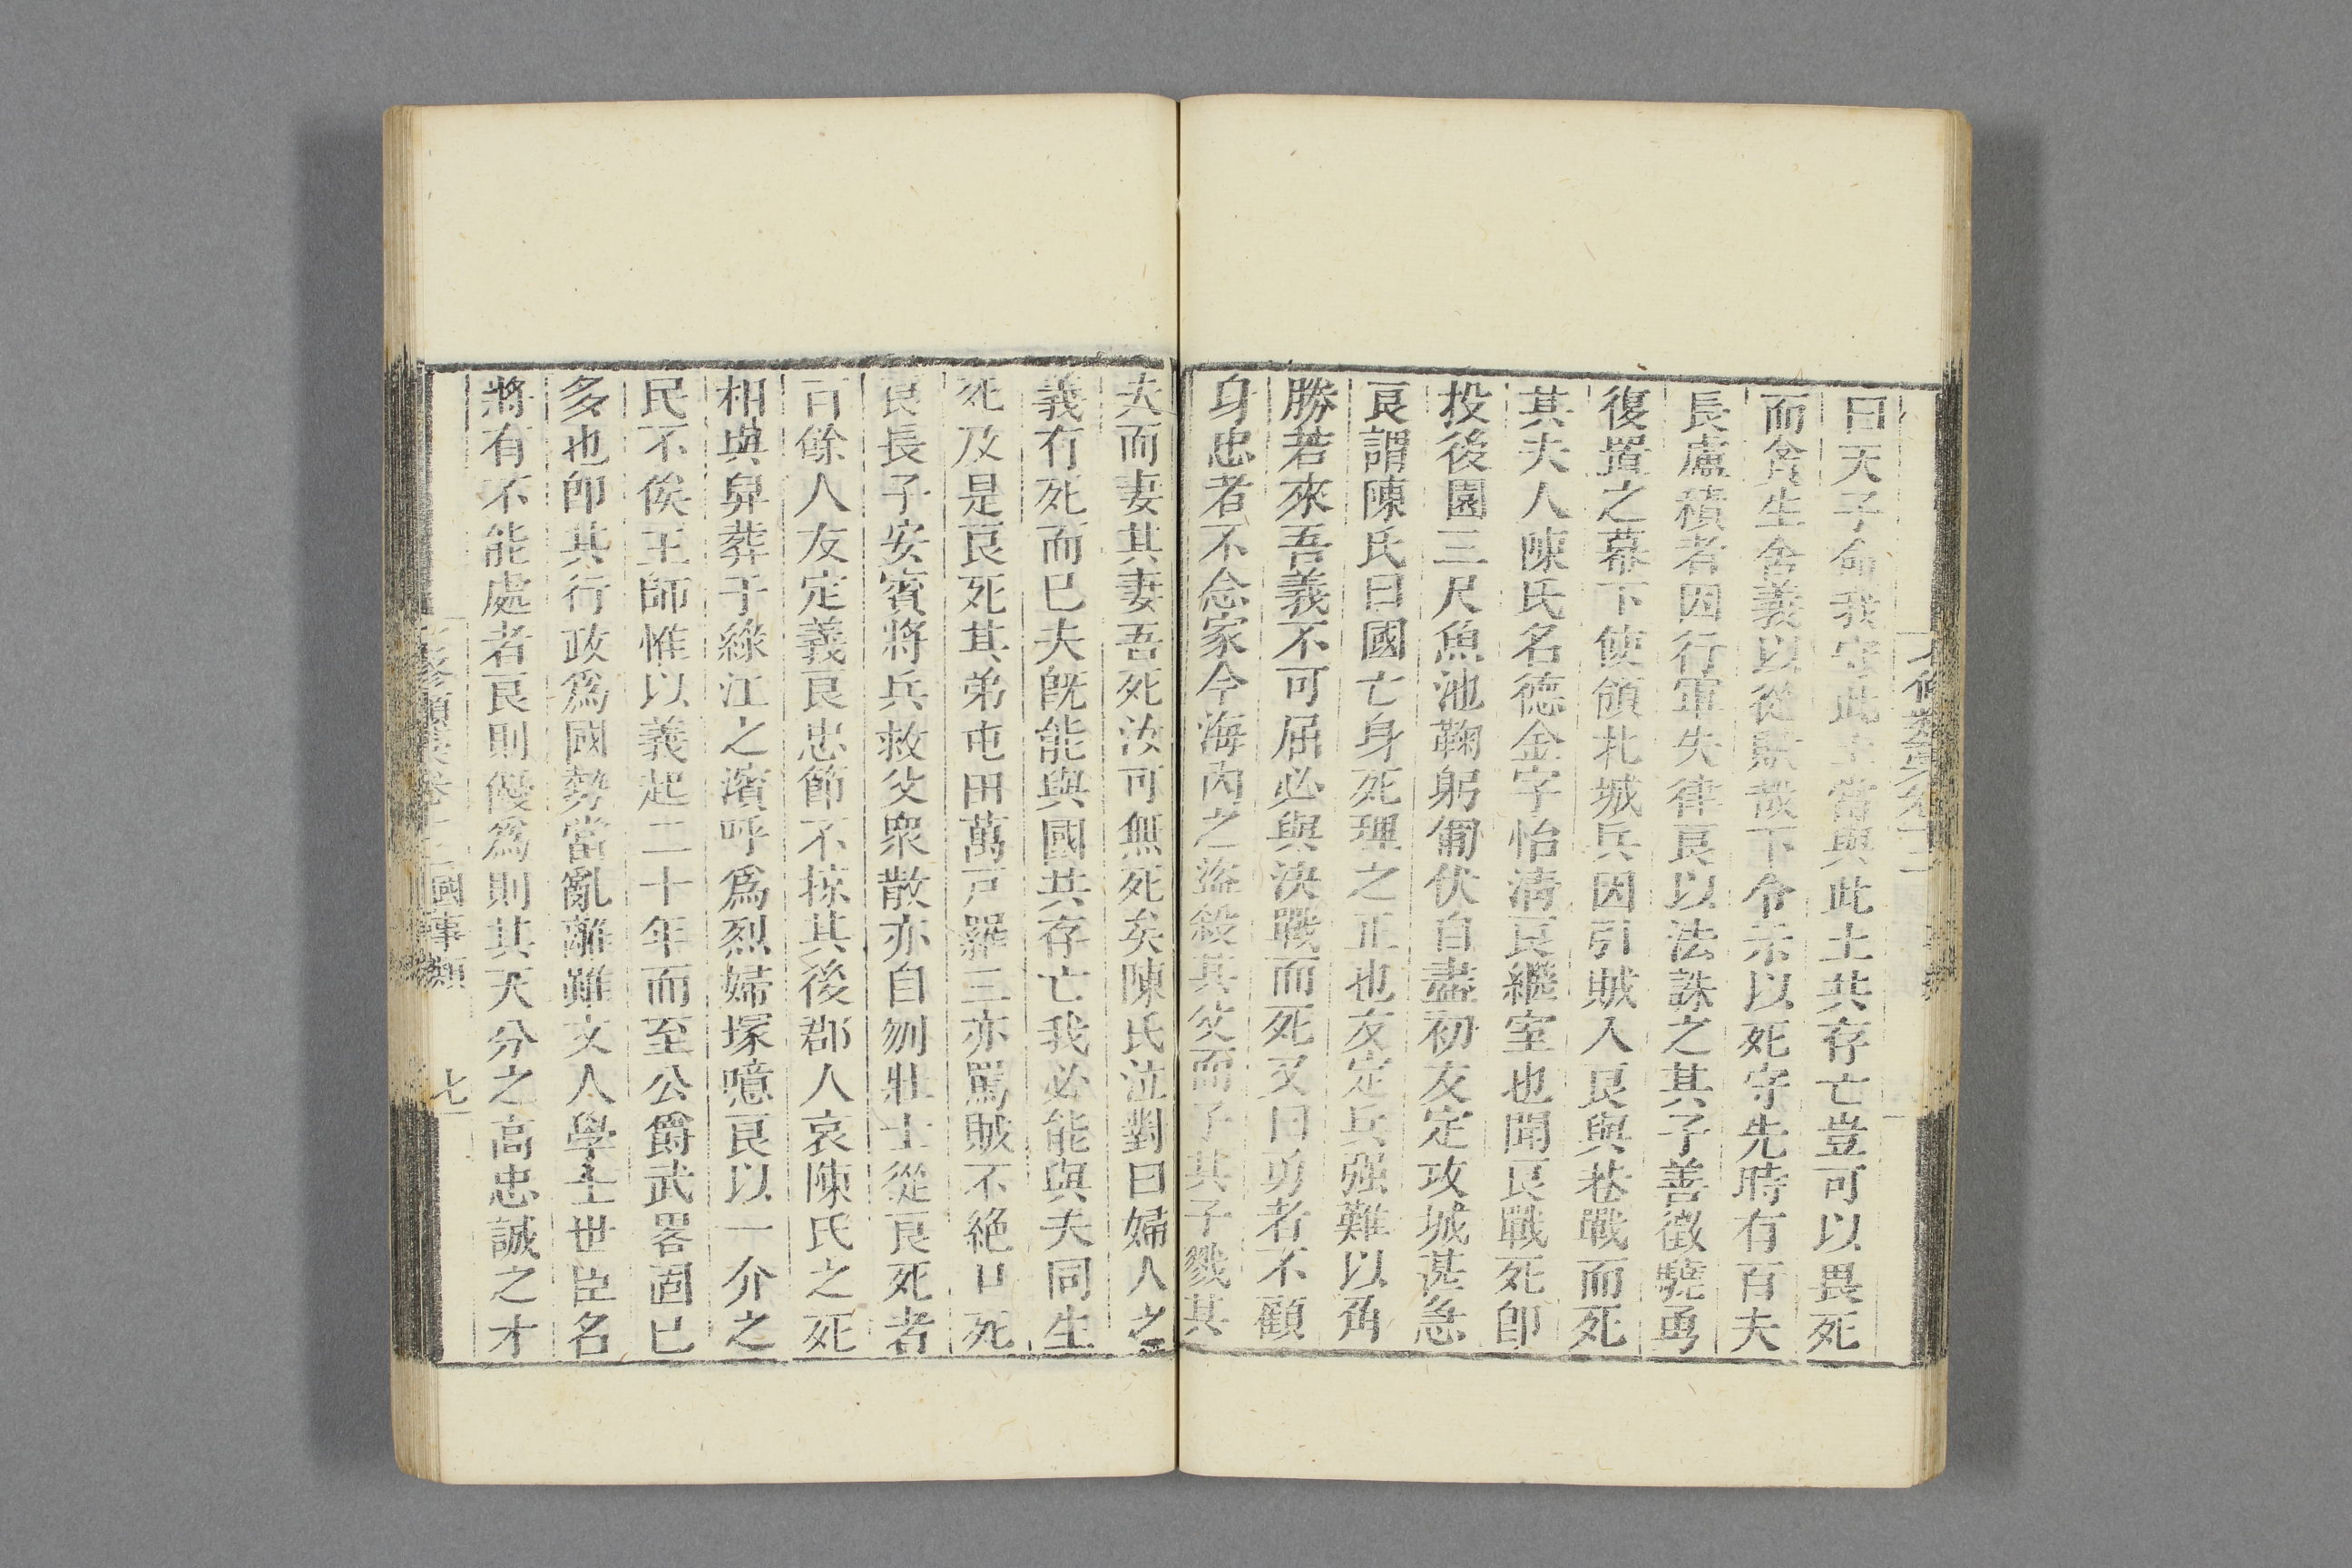 曰天子命我守此土當與此土共存亡豈可以畏死
而貪生舍義以從賊哉下令示以死守先時有百夫
長盧積者因行軍失律艮以法誅之其子善徵驍勇
復置之幕下使領北城兵因引賊入艮與巷戰而死
其夫人陳氏名德金字怡清艮繼室也聞艮戰死卽
投後園三尺魚池鞠躬匍伏自盡初友定攻城甚急
艮謂陳氏曰國亡身死理之正也友定兵强難以角
勝若來吾義不可屈必與決戰而死又曰勇者不顧
身忠者不念家今海內之盜殺其父而子其子戮其
夫而妻其妻吾死汝可無死矣陳氏泣對曰婦人之
義有死而已夫旣能與國共存亡我必能與夫同生
死及是艮死其弟屯田萬戸羅三亦罵賊不絶口死
艮長子安賓將兵救父衆散亦自刎壯士從艮死者
百餘人友定義艮忠節不掠其後郡人哀陳氏之死
相與舁葬于綠江之濱呼爲烈婦塚噫艮以一介之
民不俟王師惟以義起二十年而至公爵武畧固已
多也卽其行政爲國勢當亂離難文人學士世臣名
將有不能處者艮則優爲則其天分之高忠誠之才
國事類
七